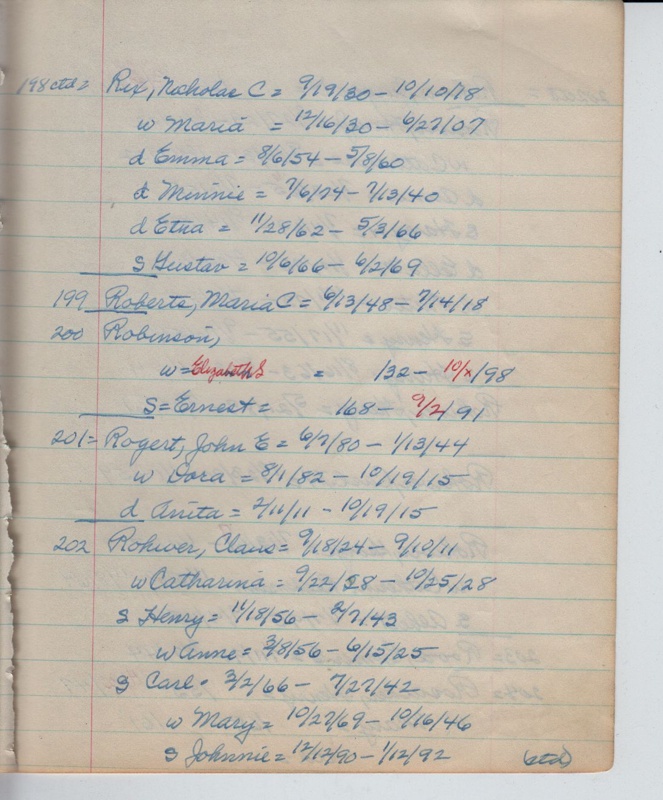 198 ctd = Rix, Nicholas C = 9/19/30 - 10/10/78
w Maria = 12/16/30 - 6/27/07
d Emma = 8/6/54 - 5/8/60
d Minnie = 7/6/74 - 7/13/40
d Etna = 11/28/62 - 5/3/66
s Gustav = 10/6/66 - 6/2/69
199 Roberts, Maria C = 6/13/48 - 7/14/18
200 Robinson,
w = Elizabeth S = /32 - 10/x/98
S = Ernest = 168 - 9/2/91
201 = Rogert, John E = 6/7/80 - 1/13/44
w Dora = 8/1/82 - 10/19/15
d Anita = 2/11/11 - 10/19/15
202 Rohwer, Claus = 9/18/24 - 9/10/11
w Catharina = 9/22/28 - 10/25/28
s Henry = 11/18/56 - 2/7/43
w Anne = 3/8/56 - 6/15/25
s Carl = 3/2/66 - 7/27/42
w Mary = 10/27/69 - 10/16/46
s Johnnie = 12/12/90 - 1/12/92 (ctd)